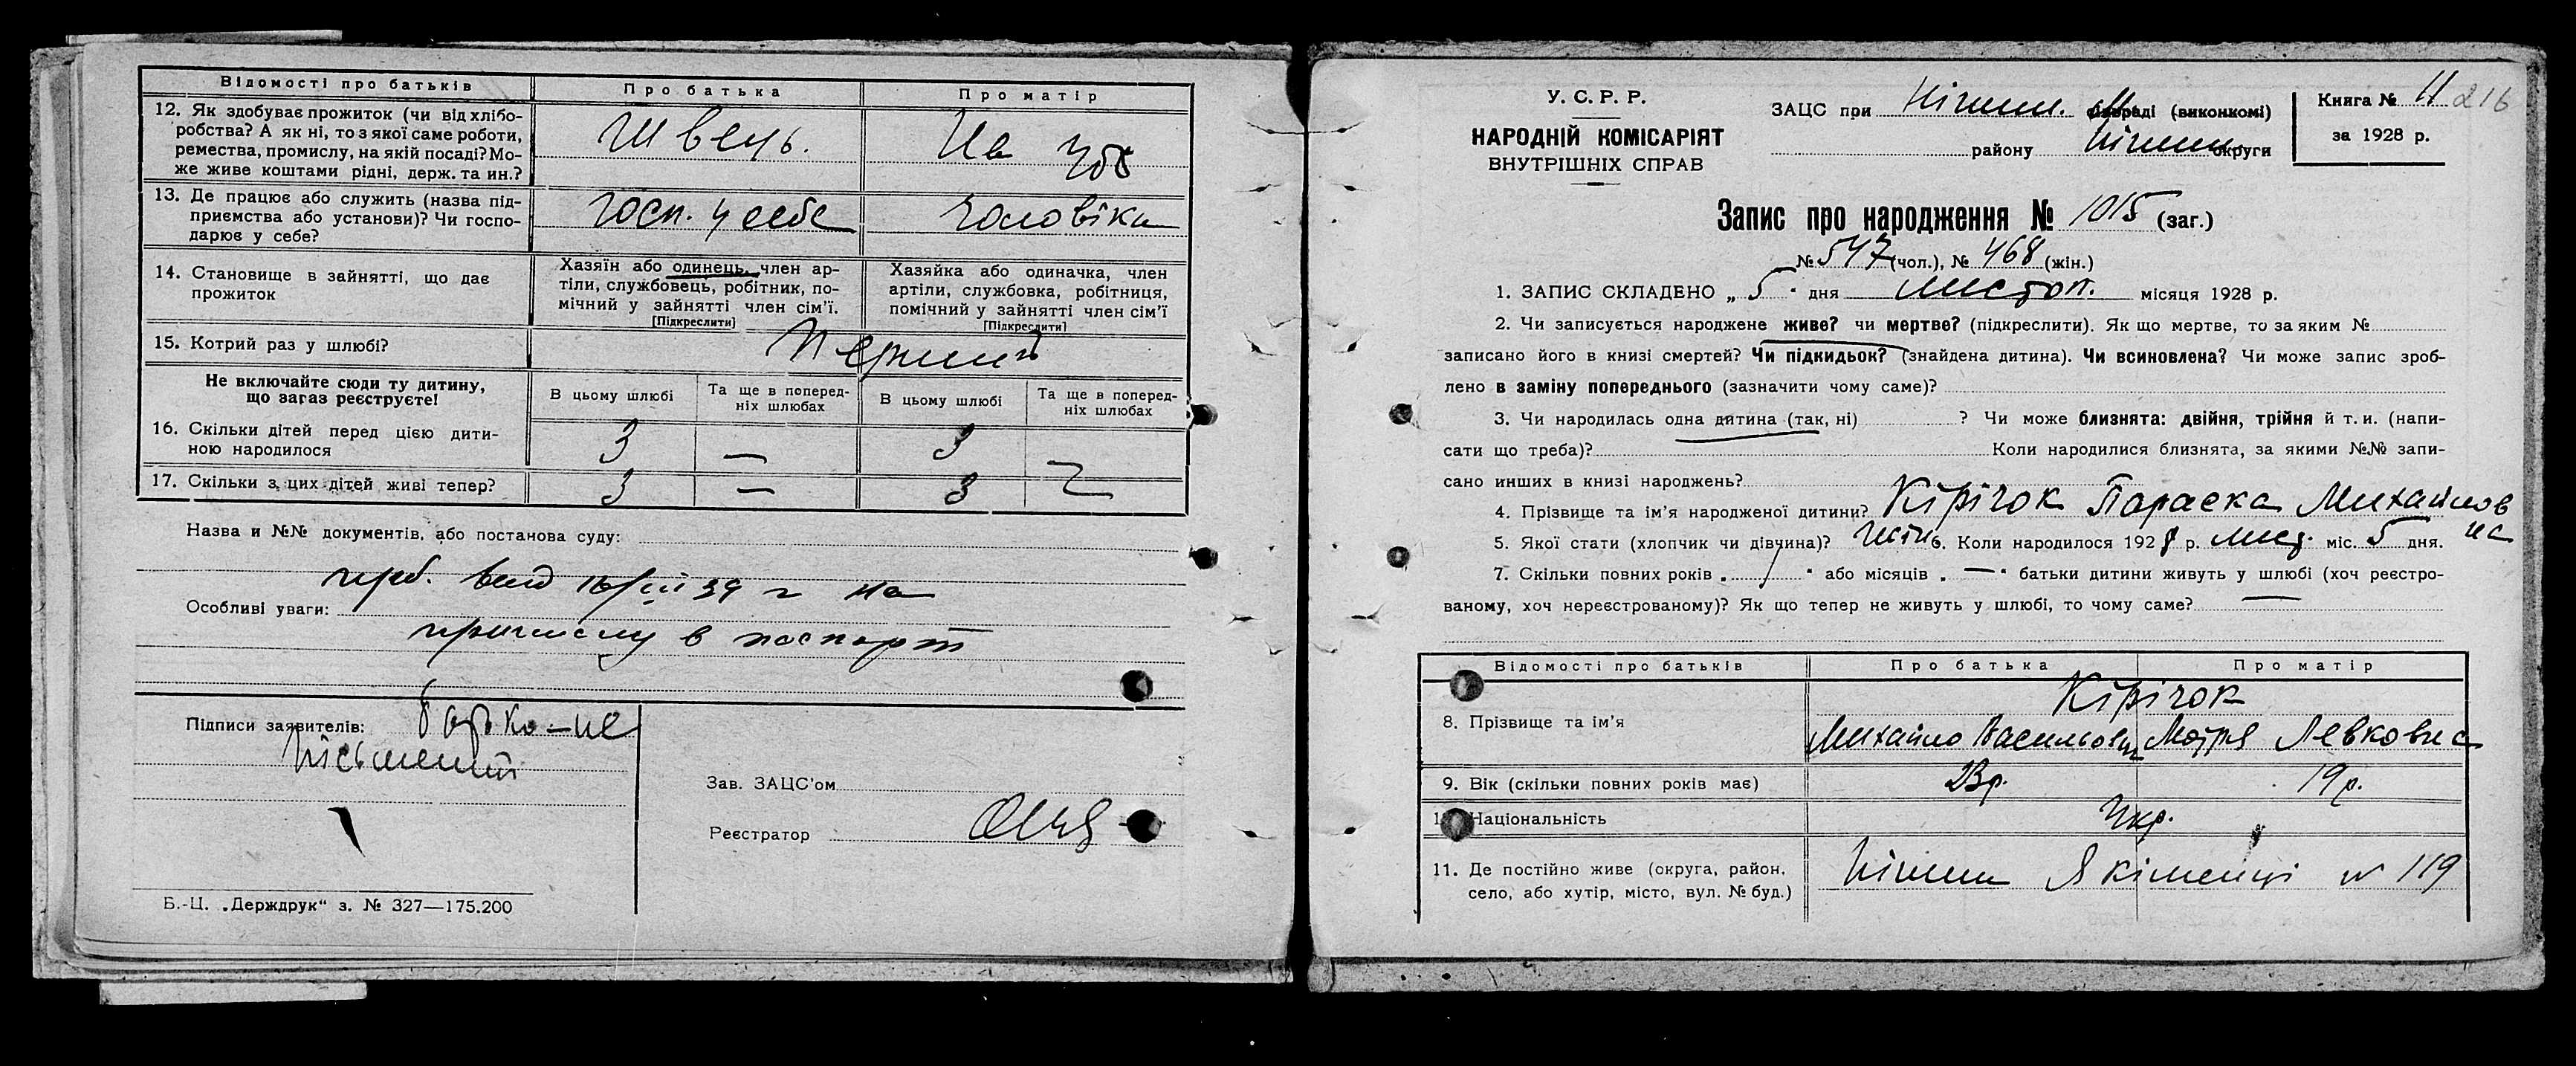 Відомості про батьків Про батька Про матір
12. Як здобуває прожиток (чи від хлібо-
робства? А як ні, то з якої саме роботи,
ремества, промислу, на якій посаді? Мо-
же живе коштами рідні, держ. та ин.?
Швець.
На
13. Де працює або служить (назва під-
приємства або установи)? Чи госпо-
дарює у себе?
Госп. у себе
чоловіка
14. Становище в зайнятті, що дає
прожиток
Хазяїн або одинець, член ар-
тіли, службовець, робітник, по-
мічний у зайнятті член сім'ї.
[Підкреслити]
Хазяйка або одиначка, член
артіли, службовка, робітниця,
помічний у зайнятті член сім'ї
[Підкреслити]
15. Котрий раз у шлюбі?
Не включайте сюди ту дитину,
що загаз реєструєте!
В цьому шлюбі
Та ще в поперед-
ніх шлюбах
В цьому шлюбі
Та ще в поперед-
ніх шлюбах
16. Скільки дітей перед цією дити-
ною народилося
3 — 3 —
17. Скільки з цих дітей живі тепер? 3 — 3 —
Назва и №№ документів, або постанова суду:
на
Особливі уваги:
в паспорт
Підписи заявителів:
Зав. ЗАЦС'ом
Реєстратор
Б.-Ц. „Держдрук" з. № 327—175.200
У. С. Р. Р.
НАРОДНІЙ КОМІСАРІЯТ
ВНУТРІШНІХ СПРАВ
ЗАЦС при Ніжин. раді (виконкомі)
району Ніжин округи
Книга № 11 216
за 1928 р.
Запис про народження № 1015 (заг.)
№ 547 (чол.), № 468 (жін.)
1. ЗАПИС СКЛАДЕНО „ 5 " дня листоп. місяця 1928 р.
2. Чи записується народжене живе? чи мертве? (підкреслити). Як що мертве, то за яким №
записано його в книзі смертей? Чи підкидьок? (знайдена дитина). Чи всиновлена? Чи може запис зроб-
лено в заміну попереднього (зазначити чому саме)?
3. Чи народилась одна дитина (так, ні) ? Чи може близнята: двійня, трійня й т. и. (напи-
сати що треба)? Коли народилися близнята, за якими №№ запи-
сано инших в книзі народжень?
4. Прізвище та ім'я народженої дитини? Кірічок Параска Михайлов
на
5. Якої стати (хлопчик чи дівчина)? 6. Коли народилось 1928 р. лист. міс. 5 дня.
7. Скільки повних років „ " або місяців „ — " батьки дитини живуть у шлюбі (хоч реєстро-
ваному, хоч нереєстрованому)? Як що тепер не живуть у шлюбі, то чому саме? —
Відомості про батьків Про батька Про матір
8. Прізвище та ім'я
Кірічок
Михайло Васильович Мотря Левковна
9. Вік (скільки повних років має) 23 р. 19 р.
Національність Укр.
11. Де постійно живе (округа, район,
село, або хутір, місто, вул. № буд.)
Ніжин Якіменці № 119